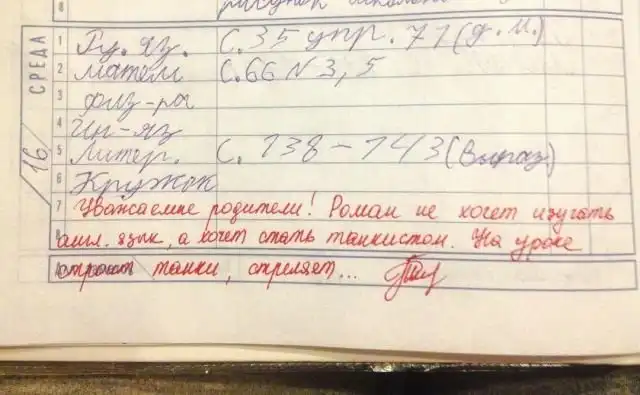 8 рисунок
СРЕДА 16
1 Ру. яз. С. 35 упр. 71 (д.и.)
2 матем С. 66 N 3, 5
3 физ-ра
4 Ин-яз
5 Литер. С. 138 – 143 (выраз)
6 Кружок
7 Уважаемые родители! Роман не хочет изучать
8 англ. язык, а хочет стать танкистом. На уроке
строит танки, стреляет...